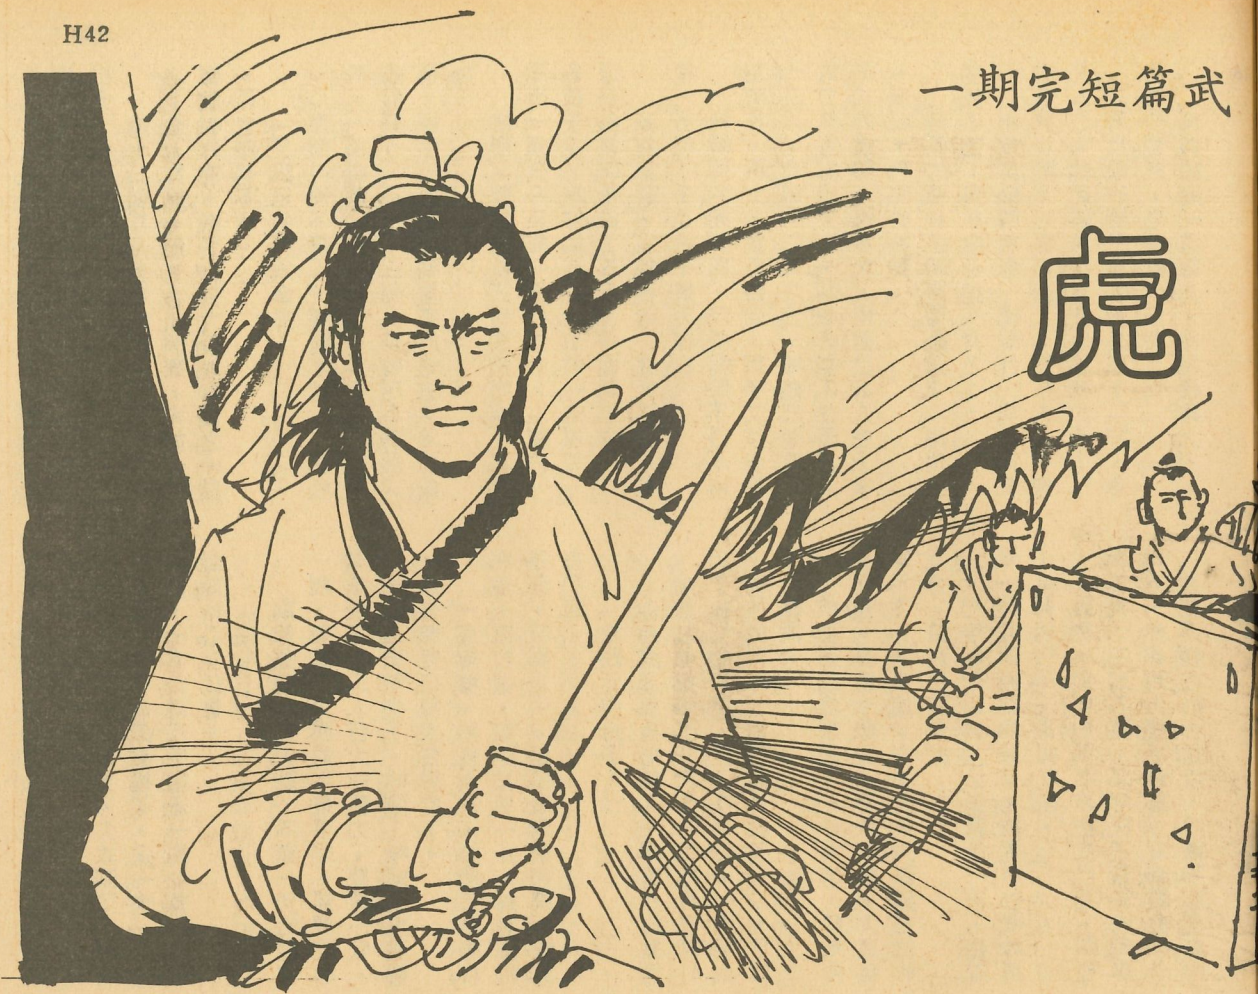 H42
一期完短篇武
虎